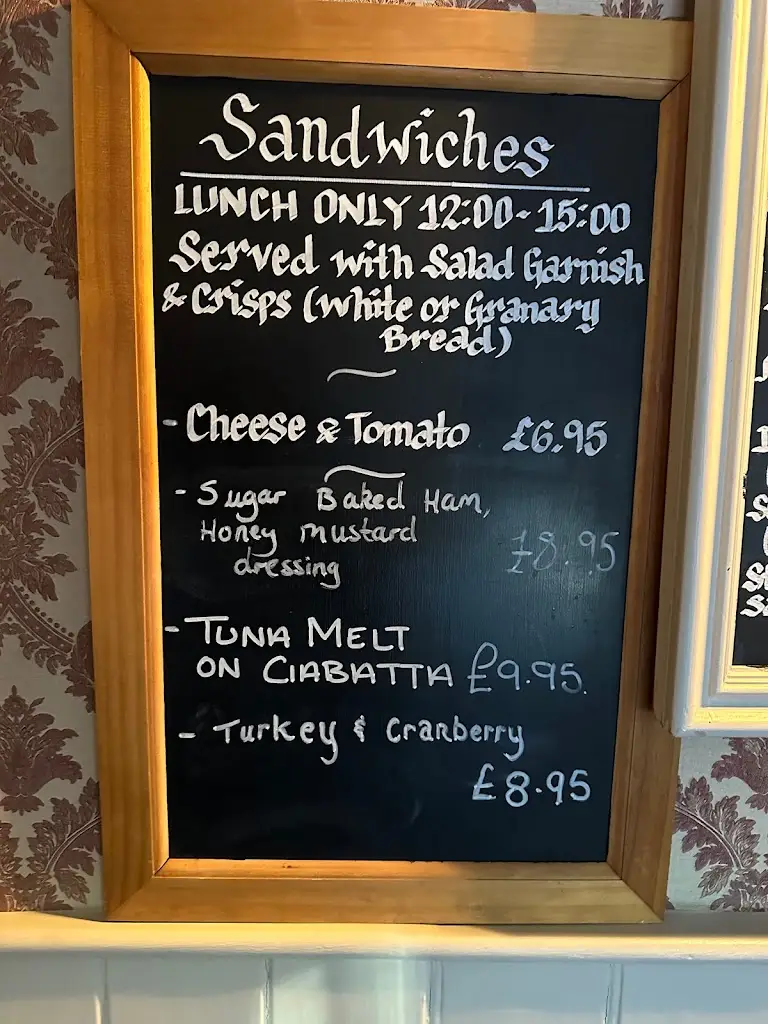 Sandwiches
LUNCH ONLY 12:00-15:00
Served with Salad Garnish
& Crisps (White or Granary
Bread)
- Cheese & Tomato £6.95
- Sugar Baked Ham,
Honey mustard
dressing £8.95
- TUNA MELT
ON CIABATTA £9.95.
- Turkey & Cranberry
£8.95